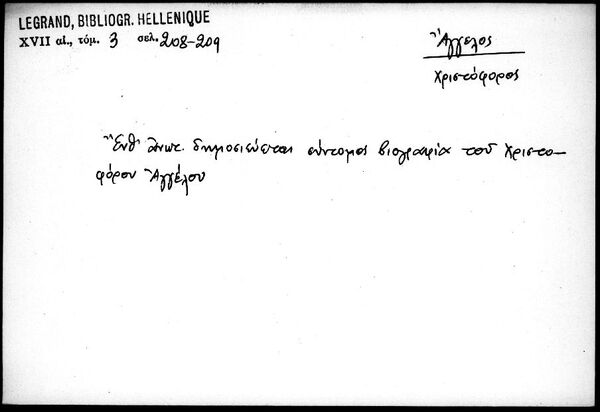 LEGRAND, BIBLIOGR. HELLENIQUE
XVII αἰ., τόμ. 3 σελ. 208-209
Ἄγγελος
Χριστόφορος
Ἔνθ' ἀνωτ. δημοσιεύεται σύντομος βιογραφία τοῦ Χριστο-
φόρου Ἀγγέλου